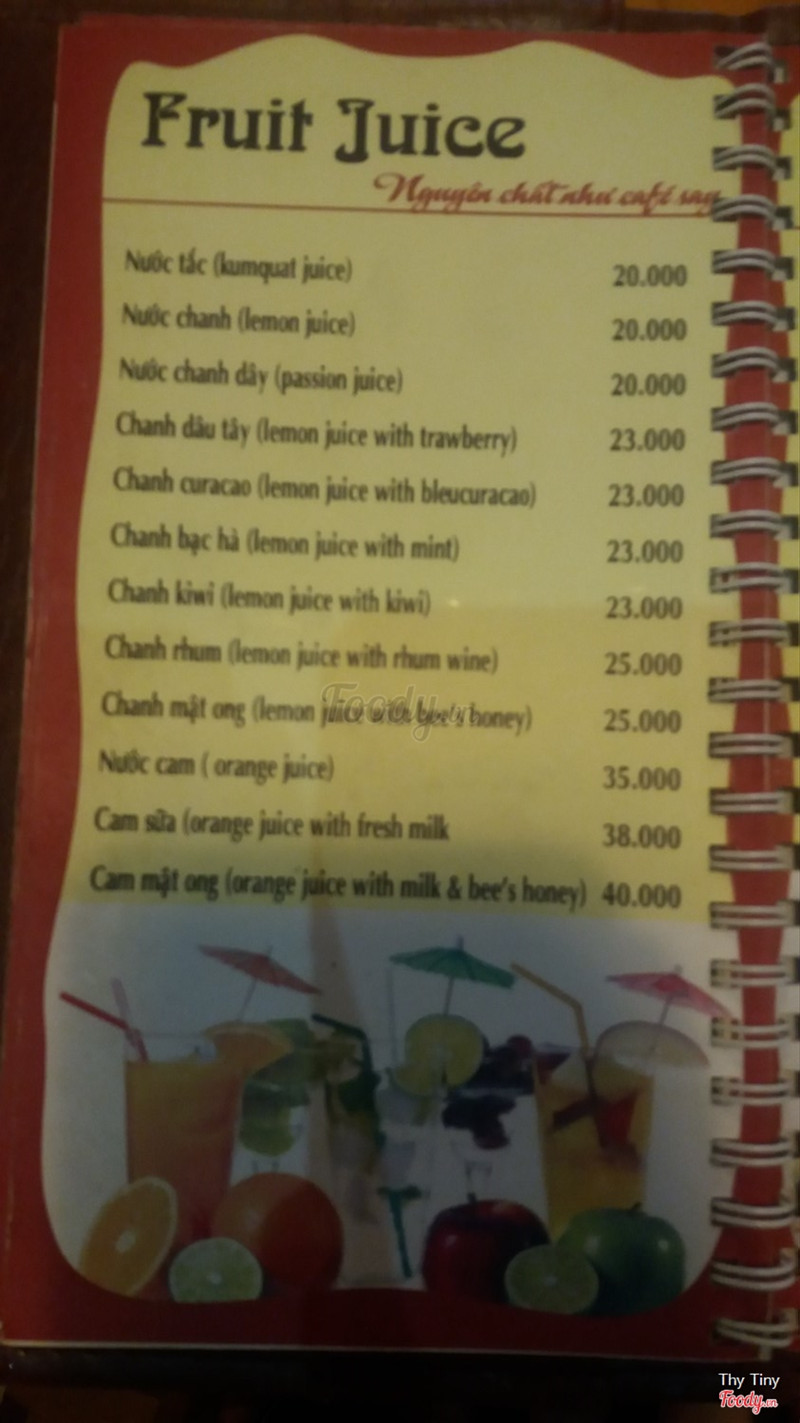 Fruit Juice
Nguyên chất như café say
Nước tắc (kumquat juice) 20.000
Nước chanh (lemon juice) 20.000
Nước chanh dây (passion juice) 20.000
Chanh dâu tây (lemon juice with trawberry) 23.000
Chanh curacao (lemon juice with bleucuracao) 23.000
Chanh bạc hà (lemon juice with mint) 23.000
Chanh kiwi (lemon juice with kiwi) 23.000
Chanh rhum (lemon juice with rhum wine) 25.000
Chanh mật ong (lemon juice with bee's honey) 25.000
Foody.vn
Nước cam ( orange juice) 35.000
Cam sữa (orange juice with fresh milk 38.000
Cam mật ong (orange juice with milk & bee's honey) 40.000
Thy Tiny
Foody.vn